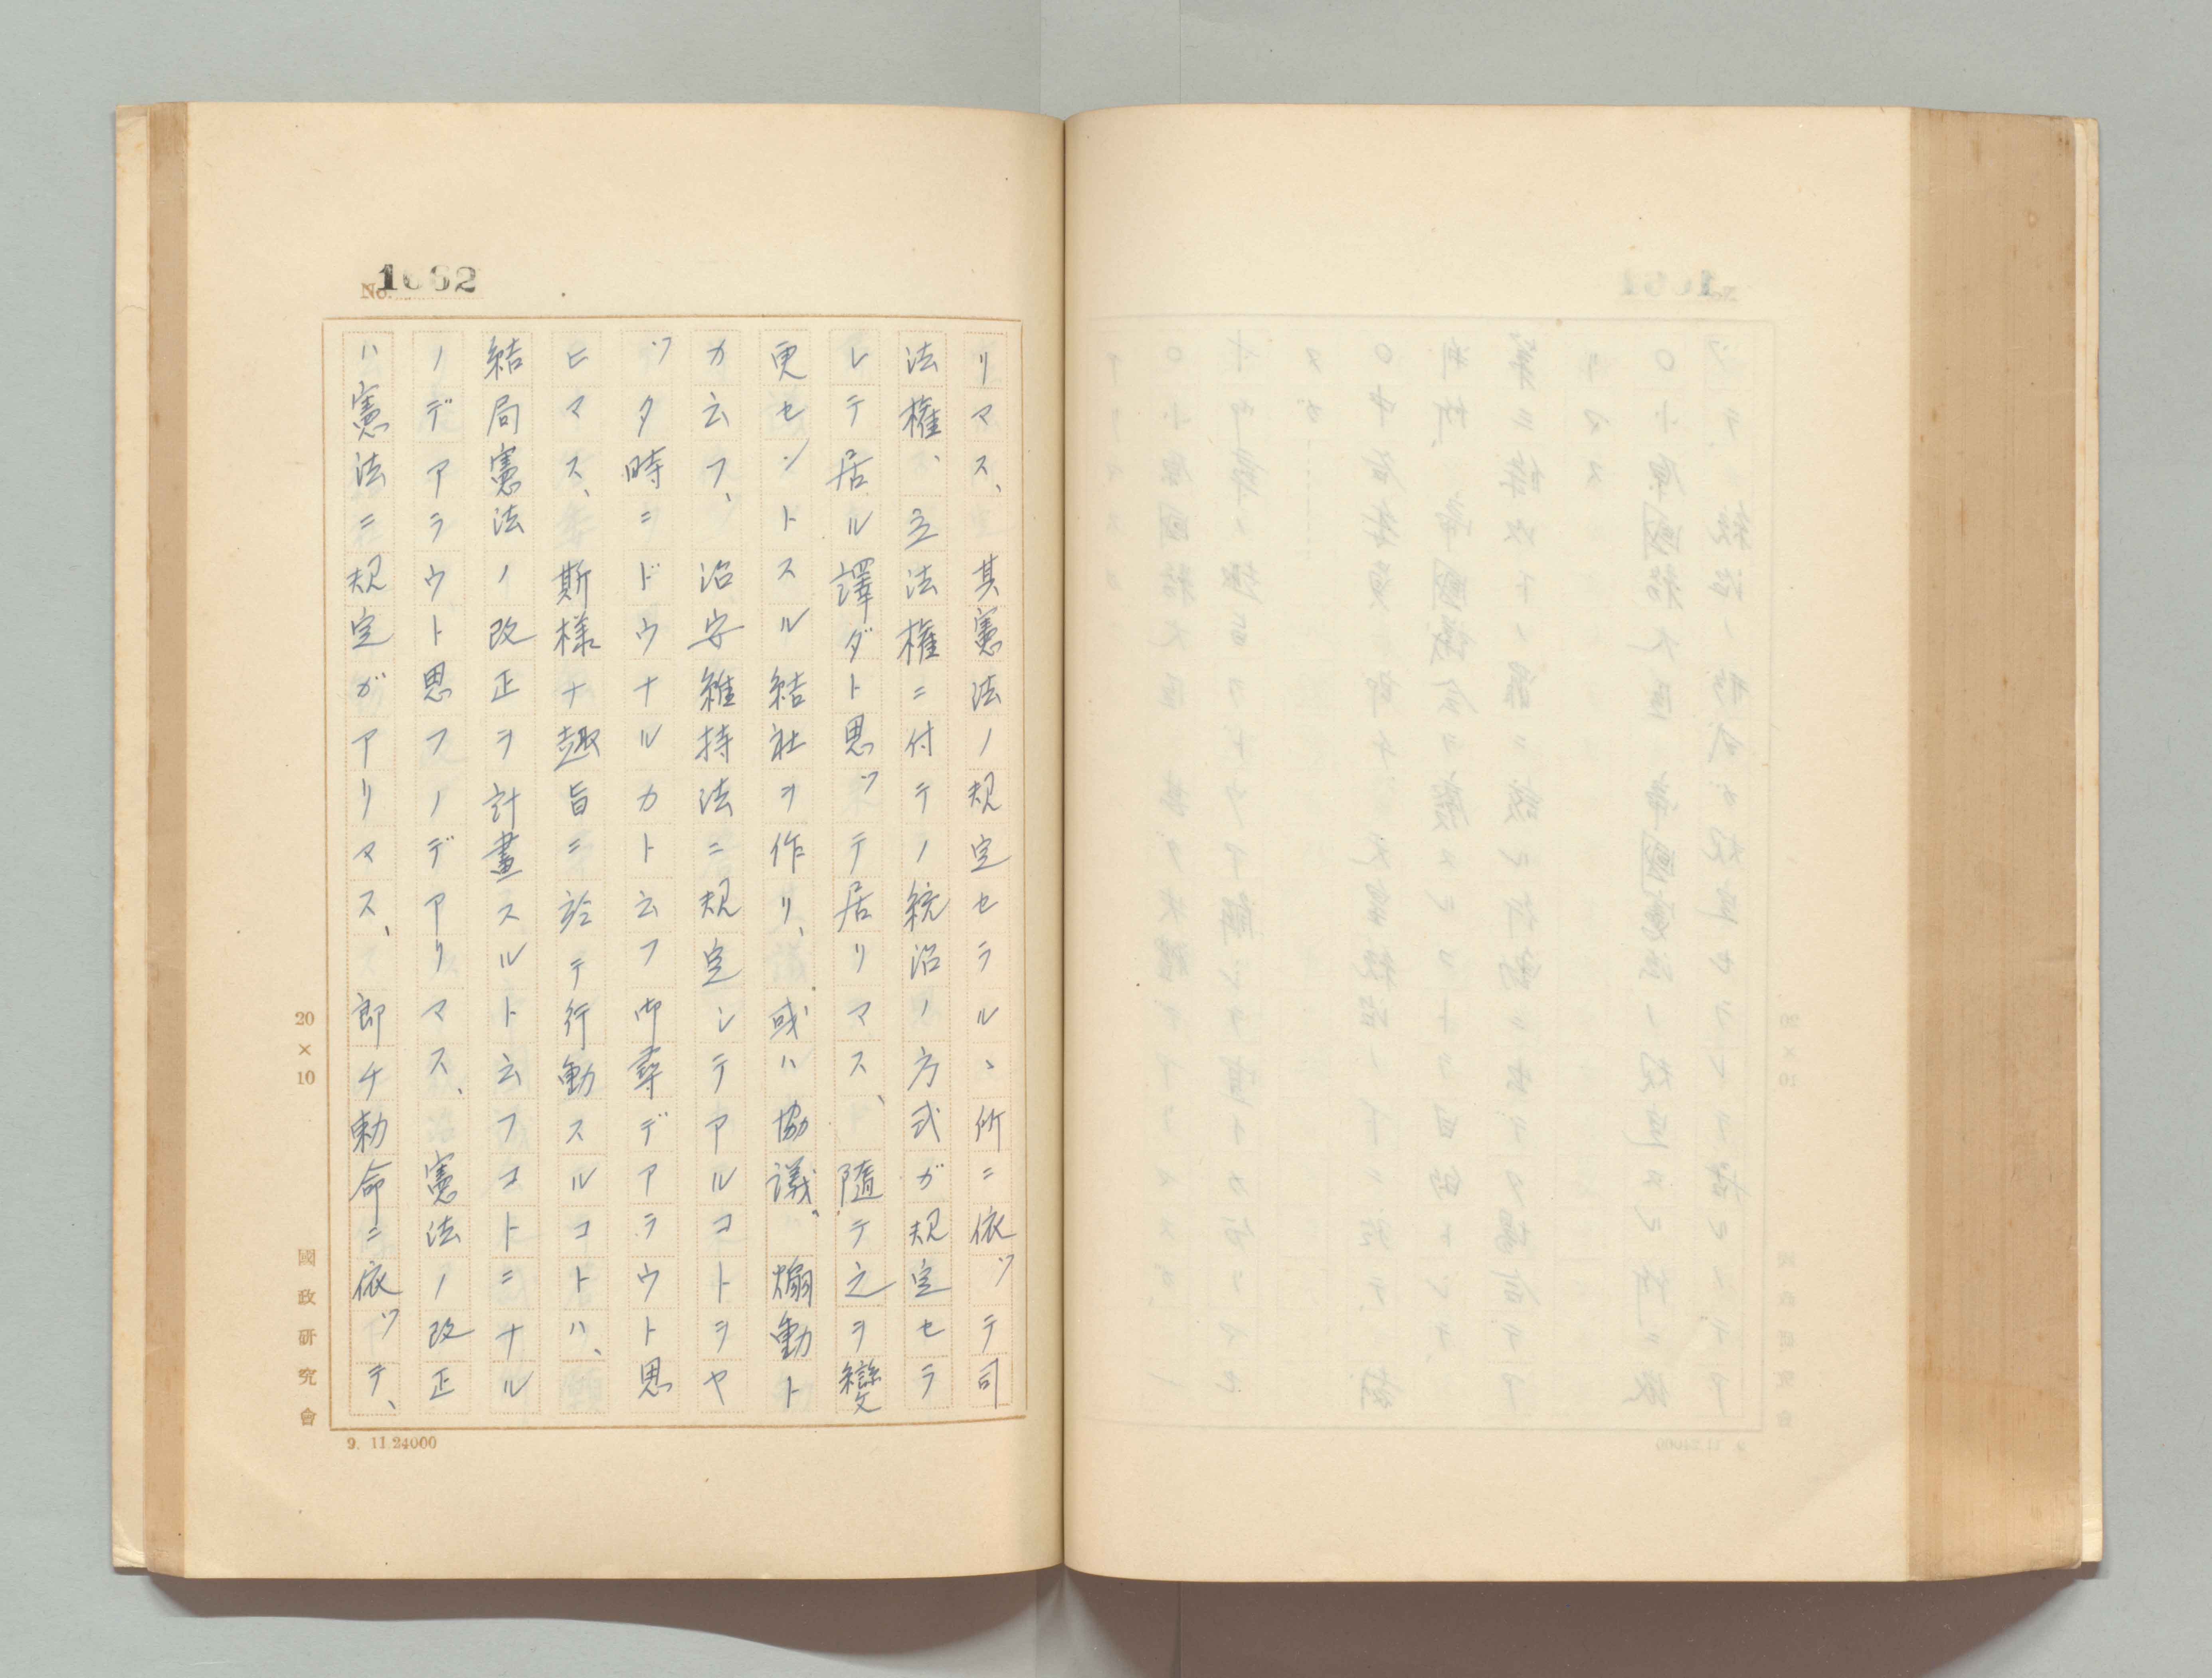 No. 1062
リマス、其憲法ノ規定セラルヽ所ニ依ツテ司
法權、立法權ニ付テノ統治ノ方式ガ規定セラ
レテ居ル譯ダト思ツテ居リマス、隨テ之ヲ變
更セントスル結社ヲ作リ、或ハ協議、煽動ト
カ云フ、治安維持法ニ規定シテアルコトヲヤ
ツタ時ニドウナルカト云フ御尋デアラウト思
ヒマス、斯樣ナ趣旨ニ於テ行動スルコトハ、
結局憲法ノ改正ヲ計畫スルト云フコトニナル
ノデアラウト思フノデアリマス、憲法ノ改正
ハ憲法ニ規定ガアリマス、即チ勅命ニ依ツテ、
20×10
國政研究會
9. 11.24000